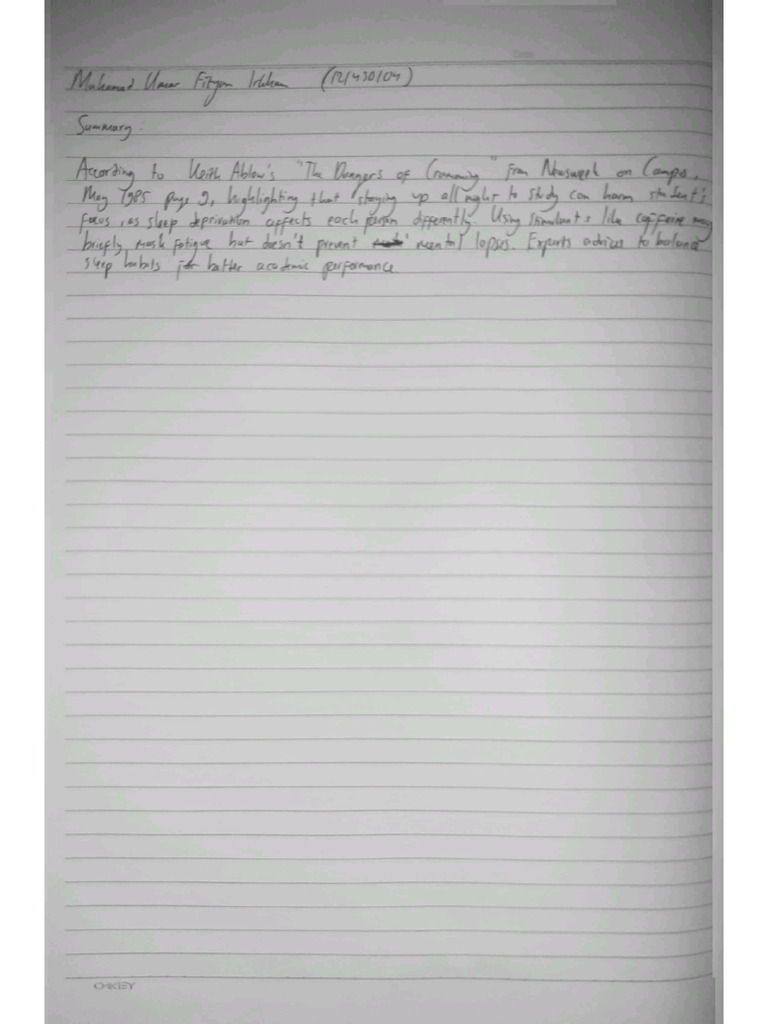 Muhamad Umar Fityan Irkham (12/430/04)
Summary.
According to Keith Ablow's "The Dangers of Cramming" from Newsweek on Campus,
May 1985 page 9, highlighting that staying up all night to study can harm student's
focus, as sleep deprivation affects each person differently. Using stimulants like caffeine may
briefly mask fatigue but doesn't prevent mental lapses. Experts advices to balance
sleep habits for better academic performance